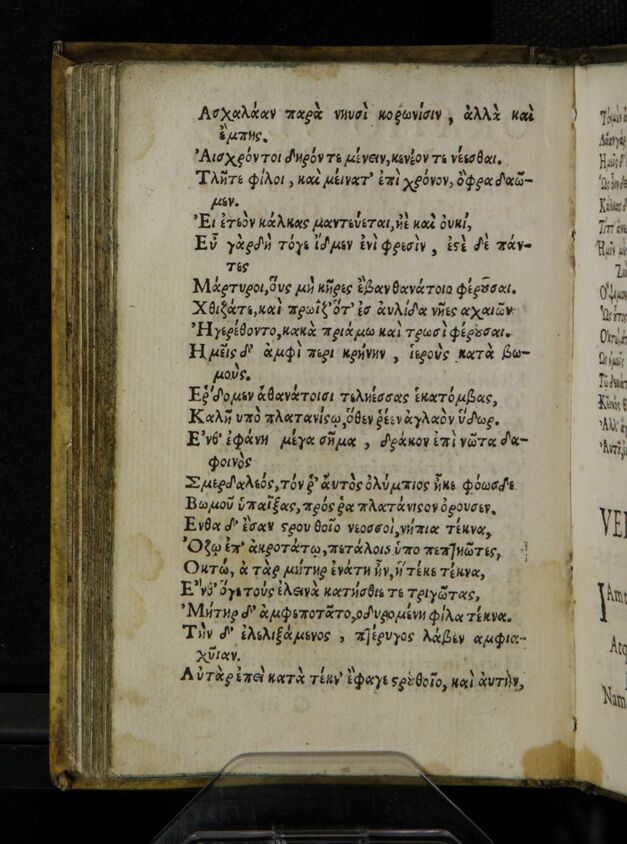 Ασχαλάαν παρὰ νηυσὶ κορωνίσιν, ἀλλὰ καὶ
ἔμπης.
Ἀισχρόν τοι δηρόν τε μένειν, κενεόν τε νέεσθαι.
Τλῆτε φίλοι, καὶ μείνατ' ἐπὶ χρόνον, ὄφρα δαῶ-
μεν.
Ἐι ἐτεὸν κάλκας μαντεύεται, ἠὲ καὶ οὐκί,
Εὖ γὰρ δὴ τόγε ἴδμεν ἐνὶ φρεσὶν, ἐςὲ δὲ πάν-
τες
Μάρτυροι, οὓς μὴ κῆρες ἔβαν θανάτοιο φέρουσαι.
Χθιζάτε, καὶ πρωίζ' ὅτ' ἐς ἀυλίδα νῆες αχαιῶν
Ἠγερέθοντο, κακὰ πριάμω καὶ τρωσὶ φέρουσαι.
Ημεῖς δ' ἀμφὶ περι κρήνην, ἱεροὺς κατὰ βω-
μούς.
Ερδομεν ἀθανάτοισι τεληέσσας ἑκατόμβας,
Καλῆ υπὸ πλατανίςῳ, ὅθεν ῥέεν ἀγλαὸν ὕδωρ.
Ενθ' ἐφάνη μέγα σῆμα, δράκον ἐπὶ νῶτα δα-
φοινὸς
Σμερδαλεός, τόν ῥ' ἀυτὸς ὀλύμπιος ἧκε φόωσδε
Βωμοῦ ὑπαΐξας, πρός ῥα πλατάνιςον ὄρουσεν.
Ενθα δ' ἔσαν ςρουθοῖο νεοσσοὶ, νήπια τέκνα,
Ὄζῳ ἐπ' ἀκροτάτῳ, πετάλοις ὑπο πεπτηῶτες,
Οκτώ, ἀ τὰρ μήτηρ ἐνάτη ἦν, ἣ τέκε τέκνα,
Ενθ' ὅγε τοὺς ἐλεινὰ κατήσθιε τετριγῶτας,
Μήτηρ δ' ἀμφεποτᾶτο, ὀδυρομένη φίλα τέκνα.
Τὴν δ' ἐλελιξάμενος, πτέρυγος λάβεν αμφια-
χῦιαν.
Αὐτὰρ ἐπεὶ κατὰ τέκν' ἔφαγε ςρουθοῖο, καὶ ἀυτὴν,
VE